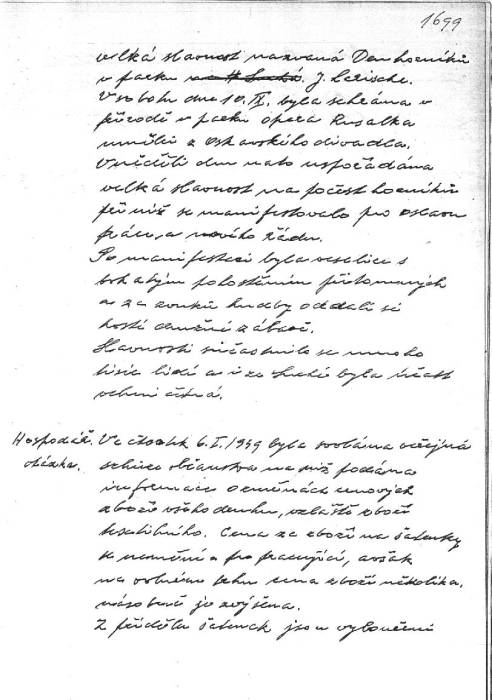 1699
velká slavnost nazvaná Den horníků
v parku J. Letische.
V sobotu dne 10. IX. byla sehrána v
přírodě v parku opera Rusalka
umělci z Ostravského divadla.
V neděli den nato uspořádána
velká slavnost na počest horníků
při níž se manifestovalo pro oslavu
práce, a nového řádu.
Po manifestaci byla veselice s
bohatým pohoštěním přítomných
a za zvuků hudby oddali se
hosté družné zábavě.
Slavnosti súčastnilo se mnoho
tisíc lidí a i ze Suché byla účast
velmi četná.
Hospodář. Ve čtvrtek 6. I. 1949 byla svolána veřejná
otázka. schůze občanstva na níž podána
informace o změnách cenových
zboží všeho druhu, zvláště zboží
textilního. Cena za zboží na šatenky
se nemění pro pracující, avšak
na volném trhu cena zboží několika-
násobně je zvýšena.
Z přídělu šatenek jsou vyloučeni